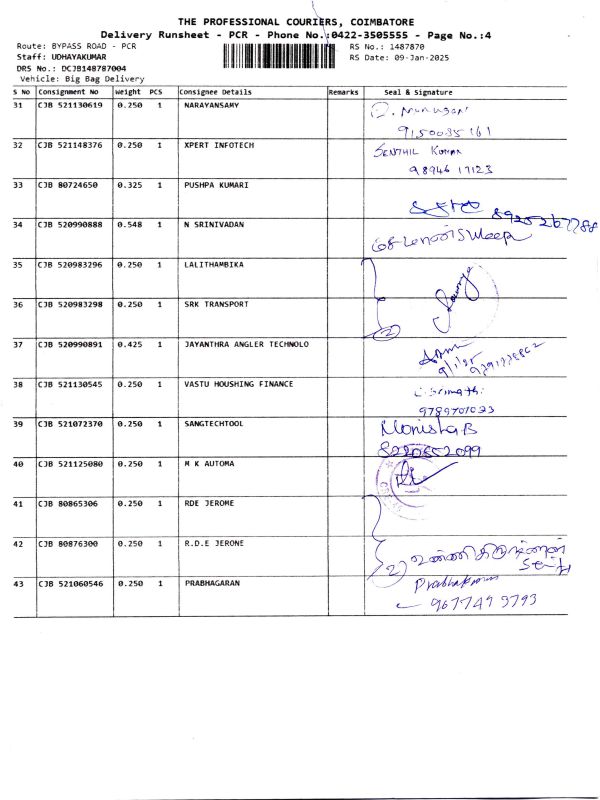 THE PROFESSIONAL COURIERS, COIMBATORE
Delivery Runsheet - PCR - Phone No.:0422-3505555 - Page No.:4
Route: BYPASS ROAD - PCR RS No.: 1487870
Staff: UDHAYAKUMAR RS Date: 09-Jan-2025
DRS No.: DCJB148787004
Vehicle: Big Bag Delivery
S No Consignment No Weight PCS Consignee Details Remarks Seal & Signature
31 CJB 521130619 0.250 1 NARAYANSAMY
9150035161
32 CJB 521148376 0.250 1 XPERT INFOTECH SENTHIL KUMAR
98946 17123
33 CJB 80724650 0.325 1 PUSHPA KUMARI
34 CJB 520990888 0.548 1 N SRINIVADAN
35 CJB 520983296 0.250 1 LALITHAMBIKA
36 CJB 520983298 0.250 1 SRK TRANSPORT
2
37 CJB 520990891 0.425 1 JAYANTHRA ANGLER TECHNOLO
9/1/25
38 CJB 521130545 0.250 1 VASTU HOUSHING FINANCE C. Srimathi
9789701023
39 CJB 521072370 0.250 1 SANGTECHTOOL Monisha B
8220552099
40 CJB 521125080 0.250 1 M K AUTOMA
41 CJB 80865306 0.250 1 RDE JEROME
42 CJB 80876300 0.250 1 R.D.E JERONE
2
43 CJB 521060546 0.250 1 PRABHAGARAN Prabhakaran
9677493793